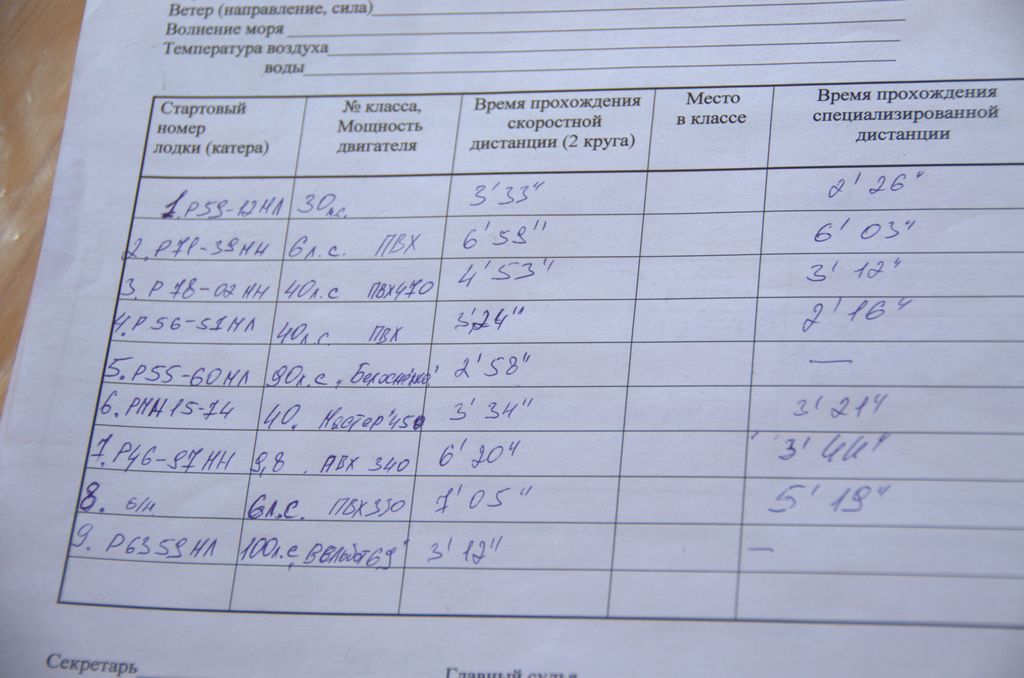 Ветер (направление, сила)
Волнение моря
Температура воздуха
воды
Стартовый номер лодки (катера) № класса, Мощность двигателя Время прохождения скоростной дистанции (2 круга) Место в классе Время прохождения специализированной дистанции
1. Р59-12НЛ 30л.с. 3' 33" 2' 26"
2. Р71-39НН 6л.с. ПВХ 6' 59" 6' 03"
3. Р78-02НН 40л.с ПВХ470 4' 53" 3' 12"
4. Р56-51НЛ 40л.с. ПВХ 3'24" 2' 16"
5. Р55-60НЛ 90л.с 2' 58" —
6. РНН15-74 40. Мастер 450 3' 34" 3' 21"
7. Р46-97НН 9,8. ПВХ 340 6' 20" 3' 44"
8. б/н 6л.с. ПВХ330 7' 05" 5' 19"
9. Р6359НЛ 100л.с 3' 12" —
Секретарь Главный судья